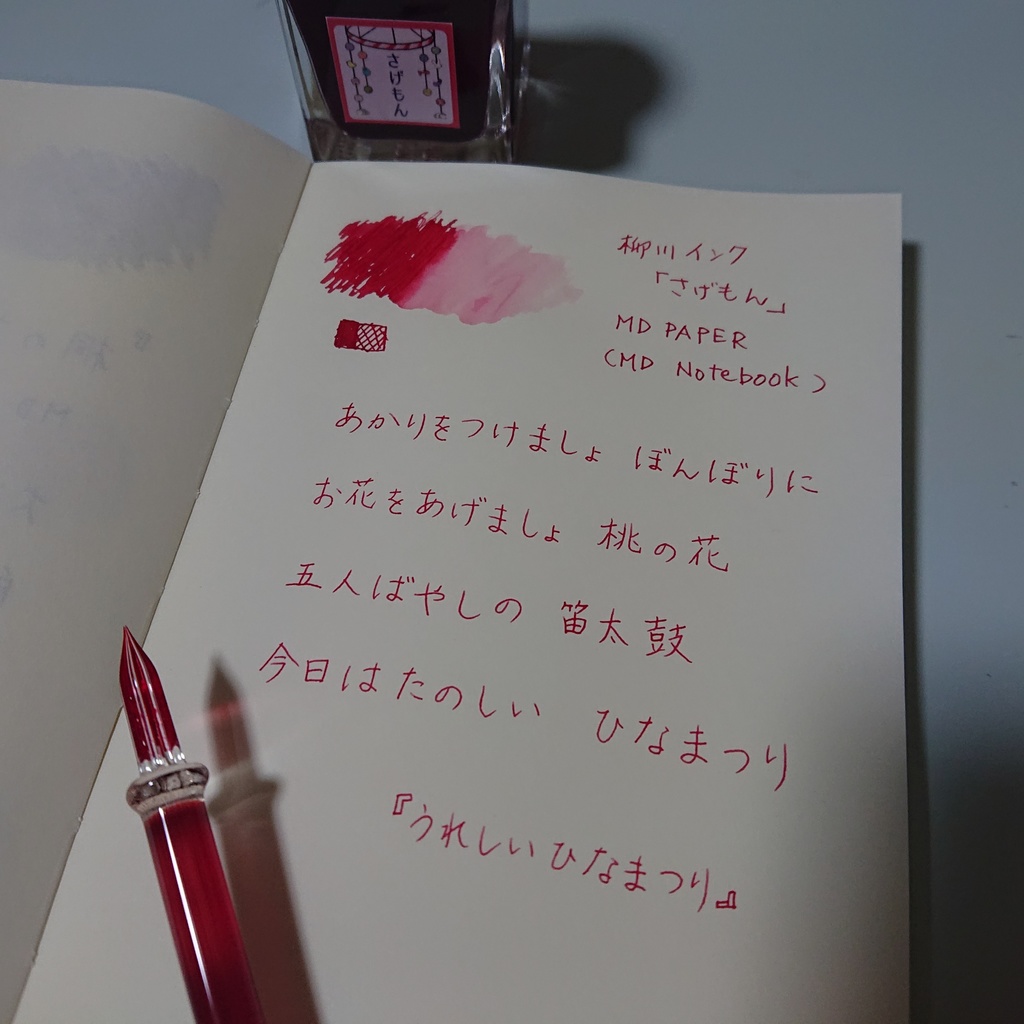 さげもん
柳川インク
「さげもん」
MD PAPER
(MD Notebook)
あかりをつけましょ ぼんぼりに
お花をあげましょ 桃の花
五人ばやしの 笛太鼓
今日はたのしい ひなまつり
『うれしいひなまつり』